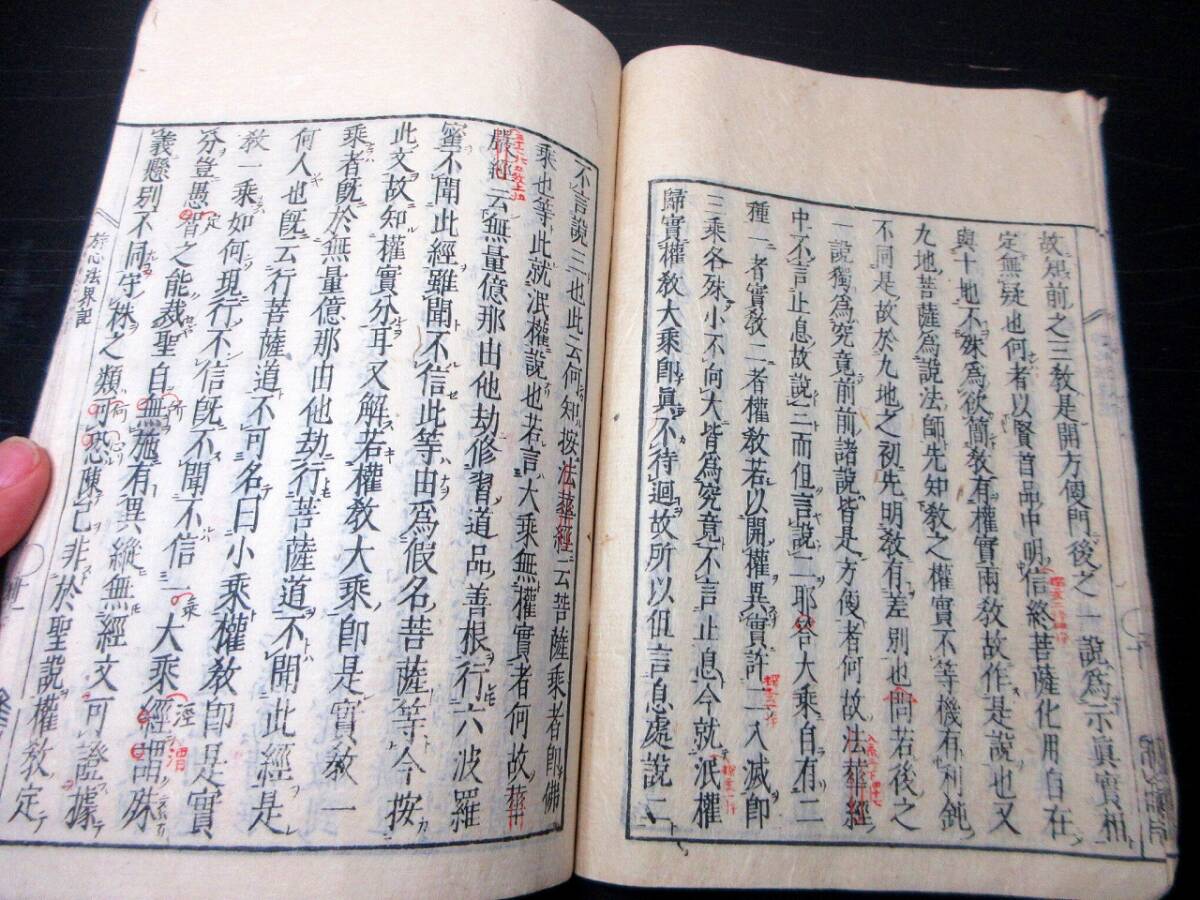 故知前之三教是開方便門後之一說為示真實相
定無疑也何者以賢首品中明信終菩薩化用自在
與十地不殊為欲簡教有權實兩教故作是說也又
九地菩薩為說法師先知教之權實不等機有利鈍
不同是故於九地之初先明教有差別也問若後之
一說獨為究竟前前諸說皆是方便者何故法華經
中不言止息故說二而但言說二耶答大乘自有二
種一者實教二者權教若以開權異實許二入滅即
三乘各殊小不向大皆為究竟不言止息今就泯權
歸實權教大乘即真不待迴故所以但言息處說二
不言說三也此云何知按法華經云菩薩乘者即佛
乘也等此就泯權說也若言大乘無權實者何故華
嚴經云無量億那由他劫修習道品善根行六波羅
蜜不聞此經雖聞不信此等由為假名菩薩等今按
此文故知權實分耳又解若權教大乘即是實教一
乘者既於無量億那由他劫行菩薩道不聞此經是
何人也既云行菩薩道不可名曰小乘權教即是實
教一乘如何現行不信既不聞不信一大乘經品殊
分豈愚智之能裁聖自無施有異縱無經文可證據
義懸別不同守株之類可恐陳己非於聖說權教定
遊心法界記